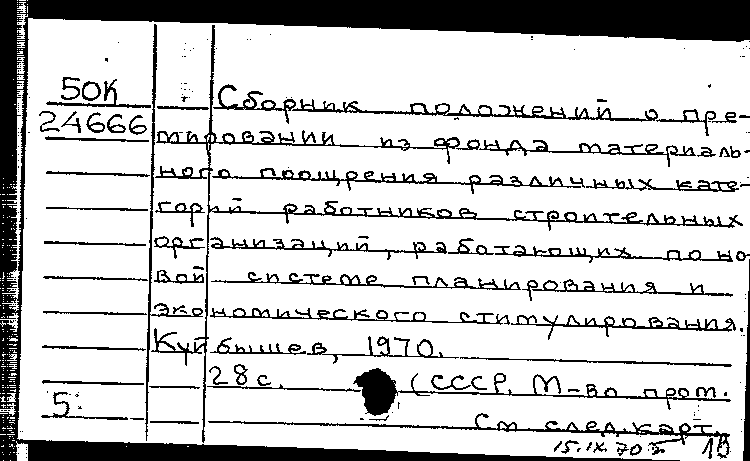 50К Сборник положений о пре-
24666 мировании из фонда материаль-
ного поощрения различных кате-
горий работников строительных
организаций, работающих по но
вой системе планирования и
экономического стимулирования.
Куйбышев, 1970.
28 с. (СССР. М-во пром.
5
См след. карт.
15.IX.70г. 10